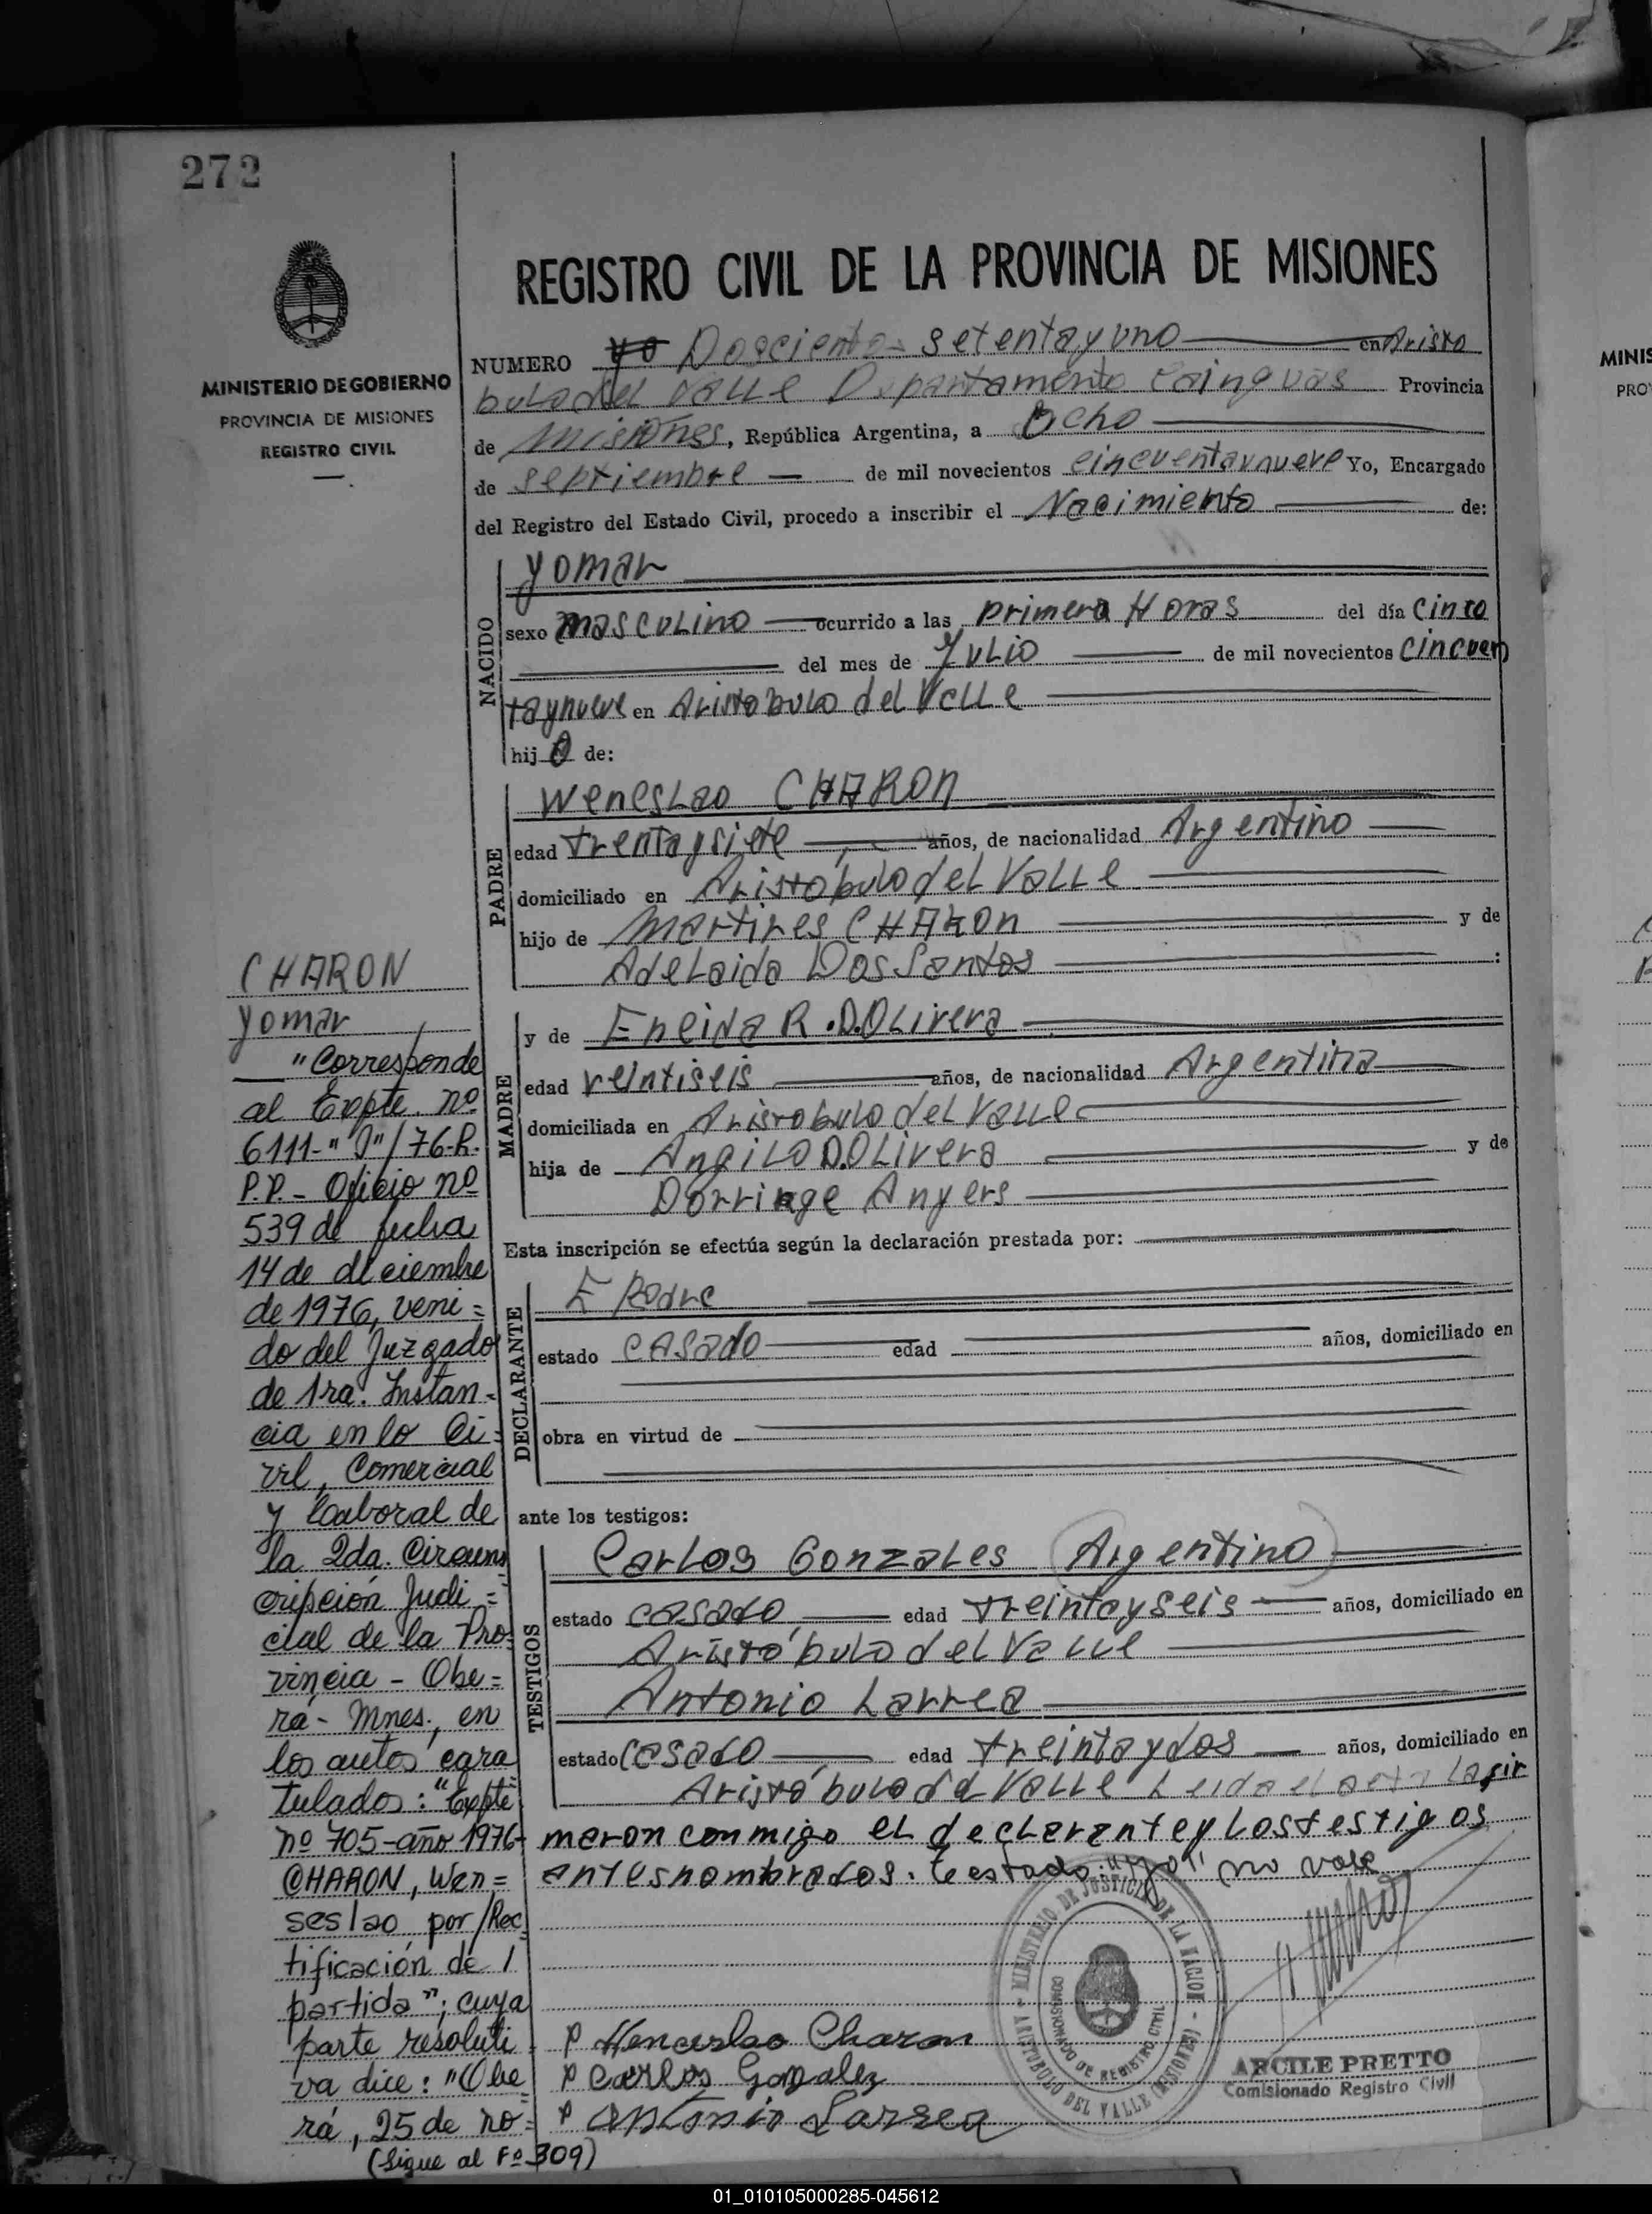 272
MINISTERIO DE GOBIERNO
PROVINCIA DE MISIONES
REGISTRO CIVIL
REGISTRO CIVIL DE LA PROVINCIA DE MISIONES
NUMERO yo Doscientos setentayuno en Aristo
bulo del Valle Departamento Cainguas Provincia
de Misiones, República Argentina, a Ocho
de septiembre de mil novecientos cincuentaynueve Yo, Encargado
del Registro del Estado Civil, procedo a inscribir el Nacimiento de:
NACIDO
yomar
sexo masculino ocurrido a las primera Horas del día cinco
del mes de Julio de mil novecientos cincuen
taynueve en Aristobulo del Valle
hijo de:
PADRE
Weneslao CHARON
edad trentaysiete años, de nacionalidad Argentino
domiciliado en Aristóbulo del Valle
hijo de Martires CHARON y de
Adelaida Dos Santos :
MADRE
y de Eneida R. D.Olivera
edad veintiseis años, de nacionalidad Argentina
domiciliada en Aristobulo del Valle
hija de Angilo D.Olivera y de
Dorringe Anyers
Esta inscripción se efectúa según la declaración prestada por:
DECLARANTE
E Padre
estado casado edad años, domiciliado en
obra en virtud de
ante los testigos:
TESTIGOS
Carlos Gonzales (Argentino)
estado casado edad treintayseis años, domiciliado en
Aristóbulo del Valle
Antonio Larrea
estado casado edad treintaydos años, domiciliado en
Aristóbulo del Valle Leida el acta la fir
maron conmigo el declarante y los testigos
antesnombrados. Testado: "yo" no vale
P Wenceslao Charon
P Carlos Gonzalez
P Antonio Larrea
MINISTERIO DE JUSTICIA DE LA NACION - ARISTOBULO DEL VALLE (MISIONES) -
COMISIONADO DE REGISTRO CIVIL
ARCILE PRETTO
Comisionado Registro Civil
CHARON
yomar
"Corresponde
al Expte. nº
6111-"J"/76-R.
P.P. - Oficio nº
539 de fecha
14 de diciembre
de 1976, veni=
do del Juzgado
de 1ra. Instan-
cia en lo Ci-
vil, Comercial
y Laboral de
la 2da. Circuns
cripción Judi=
cial de la Pro-
vincia - Obe=
rá - Mnes., en
los autos cara
tulados: "Expte
nº 705-año 1976-
CHARON, Wen=
seslao, por/Rec
tificación de 1
partida"; cuya
parte resoluti
va dice: "Obe
rá, 25 de no=
(Sigue al Fº 309)
MINIS
PRO
01_010105000285-045612